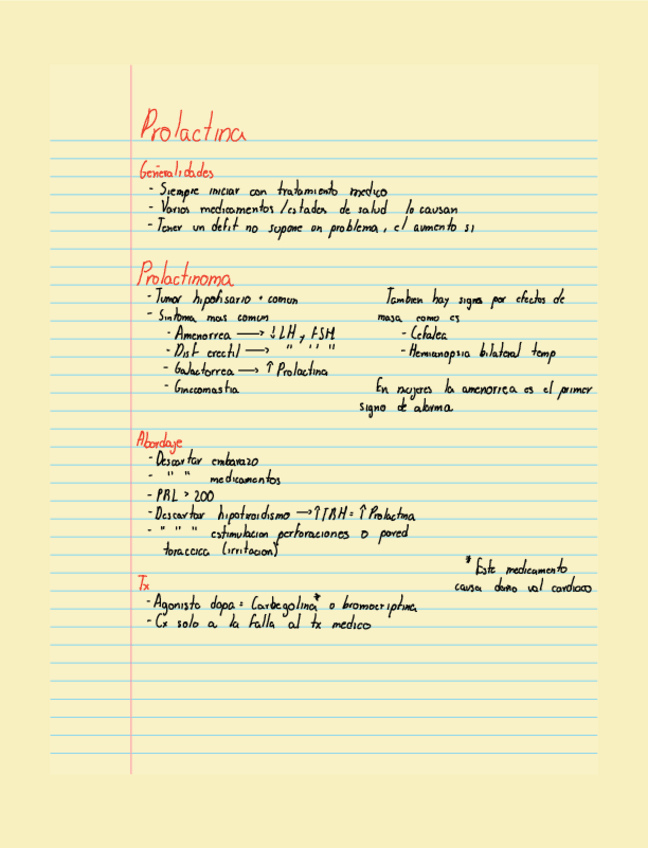 Prolactina
Generalidades
- Siempre iniciar con tratamiento medico
- Varios medicamentos /estados de salud lo causan
- Tener un defit no supone un problema, el aumento si
Prolactinoma
- Tumor hipofisario + comun
- Sintoma mas comun
- Amenorrea → ↓LH y FSH
- Disf erectil → " " " "
- Galactorrea → ↑ Prolactina
- Ginecomastia
Tambien hay signos por efectos de
masa como es
- Cefalea
- Hemianopsia bilateral temp
En mujeres la amenorrea es el primer
signo de alarma
Abordaje
- Descartar embarazo
- " " medicamentos
- PRL > 200
- Descartar hipotiroidismo → ↑TRH = ↑ Prolactina
- " " " estimulacion perforaciones o pared
toraccica (irritacion)
Tx
- Agonista dopa = Carbegolina* o bromocriptina
- Cx solo a la falla al tx medico
* Este medicamento
causa daño val cardiaco